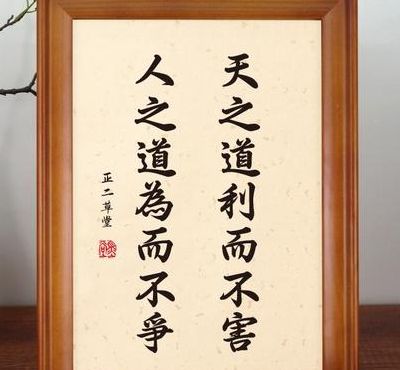 天之道利而不害
人之道為而不爭
正二草堂